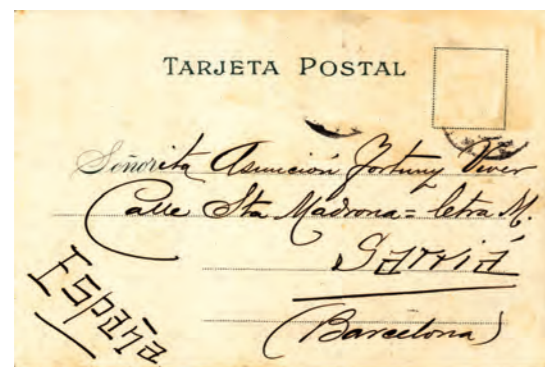 TARJETA POSTAL
Señorita Asunción Fortuny Viver
Calle Sta Madrona = letra M.
Sarriá
(Barcelona)
España